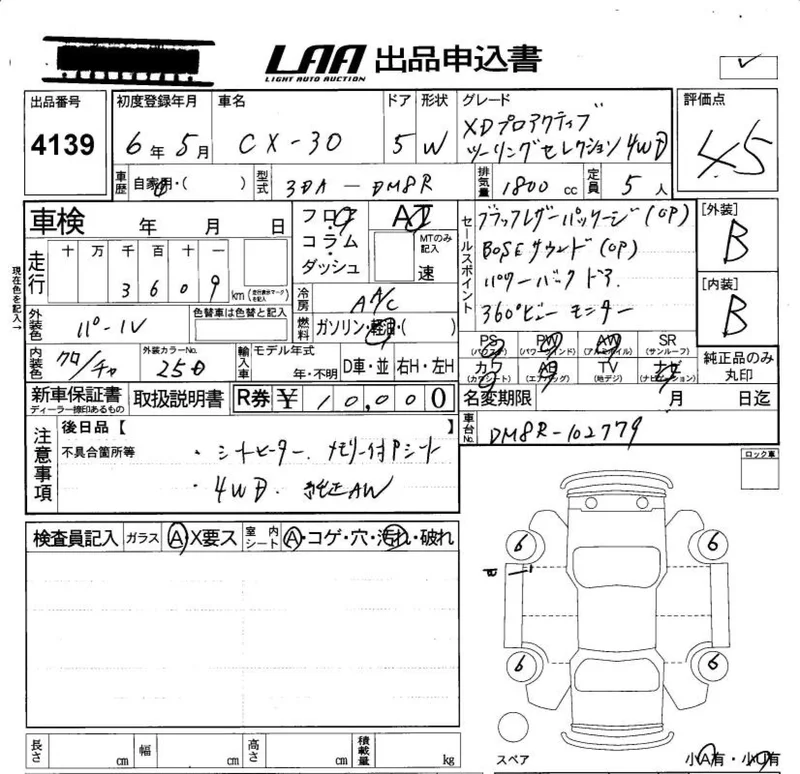 LAA 出品申込書
LIGHT AUTO AUCTION
出品番号 初度登録年月 車名 ドア 形状 グレード 評価点
4139 6年 5月 CX-30 5 W XDプロアクティブ
ツーリングセレクション 4WD 4.5
車歴 自家用・( ) 型式 3DA-DM8R 排気量 1800 cc 定員 5人
車検 年 月 日 フロア コラム・ダッシュ MTのみ記入 速
走行 十 万 千 百 十 一
3 6 0 9 km (走行表示マークを記入)
セールスポイント ブラックレザーパッケージ(OP)
BOSEサウンド(OP)
パワーバックドア.
360°ビューモニター
[外装] B
[内装] B
現在色を記入→
外装色 パール 色替車は色替と記入
冷房 A/C
燃料 ガソリン・軽油・( )
内装色 クロ/チャ 外装カラーNo. 25D 輸入車 モデル年式 年・不明 D車・並 右H・左H
PS (パワステ) PW (パワーウインド) AW (アルミホイル) SR (サンルーフ)
カワ (カワシート) AB (エアバッグ) TV (地デジ) ナビ (ナビゲーション)
純正品のみ丸印
新車保証書 ディーラー捺印あるもの 取扱説明書 R券 ¥ 10,000
名変期限 月 日迄
車台No. DM8R-102779
注意事項 後日品【 】
不具合箇所等 ・シートヒーター. メモリー付Pシート
・4WD. 純正AW
ロック車
検査員記入 ガラス A・X要ス 室内シート A・コゲ・穴・汚れ・破れ
6 6
6 6
スペア
長さ cm 幅 cm 高さ cm 積載量 kg
小A有・小U有